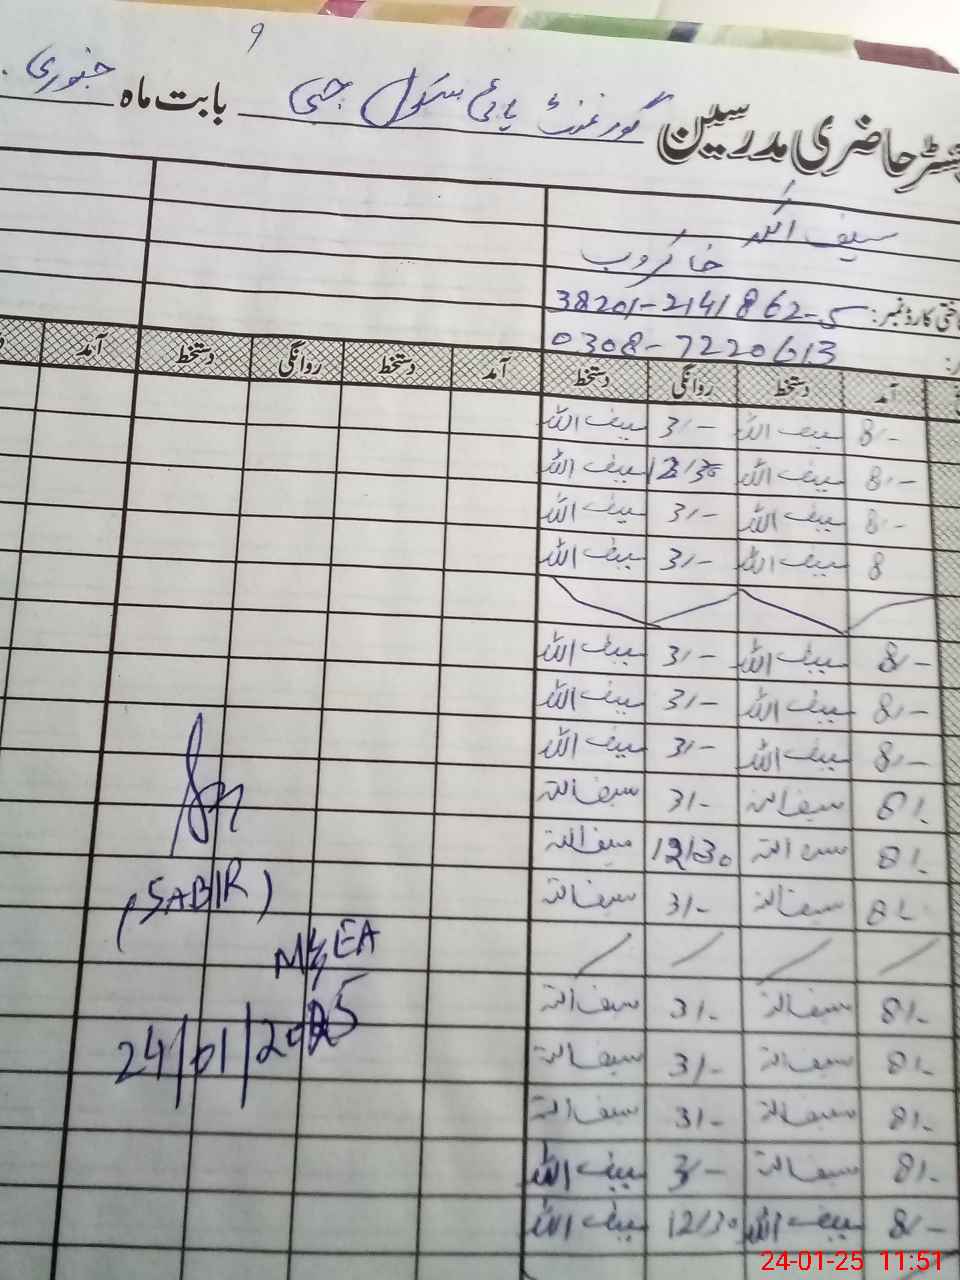 9
رجسٹر حاضری مدرسین گورنمنٹ ہائی سکول جبی بابت ماہ جنوری
سیف اللہ
خاکروب
شناختی کارڈ نمبر: 38201-2141862-5
0308-7220613
آمد دستخط روانگی دستخط آمد دستخط روانگی دستخط آمد
8/- سیف اللہ 3/- سیف اللہ
8/- سیف اللہ 12/30 سیف اللہ
8/- سیف اللہ 3/- سیف اللہ
8 سیف اللہ 3/- سیف اللہ
8/- سیف اللہ 3/- سیف اللہ
8/- سیف اللہ 3/- سیف اللہ
8/- سیف اللہ 3/- سیف اللہ
8/- سیف اللہ 3/- سیف اللہ
8/- سیف اللہ 12/30 سیف اللہ
8/- سیف اللہ 3/- سیف اللہ
8/- سیف اللہ 3/- سیف اللہ
8/- سیف اللہ 3/- سیف اللہ
8/- سیف اللہ 3/- سیف اللہ
8/- سیف اللہ 3/- سیف اللہ
8/- سیف اللہ 12/30 سیف اللہ
(SABIR)
MEA
24/01/2025
24-01-25 11:51